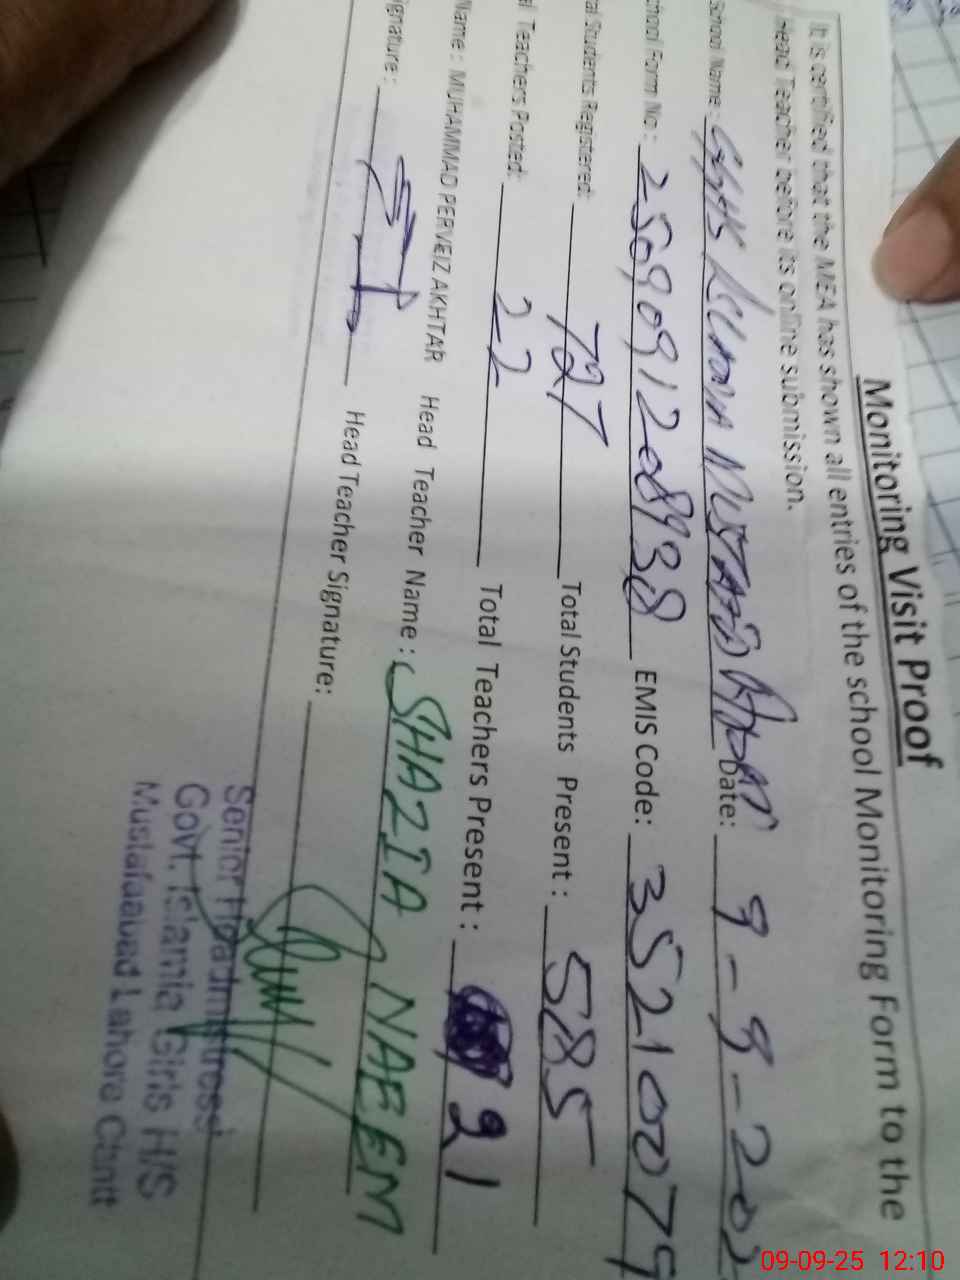 Monitoring Visit Proof
It is certified that the MEA has shown all entries of the school Monitoring Form to the
Head Teacher before its online submission.
School Name: Date: 9-9-202
chool Form No: EMIS Code: 35210079
al Students Registered: 727 Total Students Present: 585
l Teachers Posted: 22 Total Teachers Present: 21
Name: MUHAMMAD PERVEIZ AKHTAR Head Teacher Name: SHAZIA NAEEM
ignature: Head Teacher Signature:
Senior Headmistress
Govt. Islamia Girls H/S
Mustafaabad Lahore Cantt
09-09-25 12:10